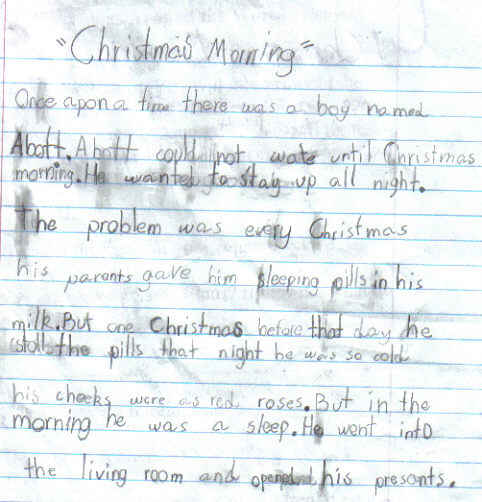 "Christmas Morning"
Once apon a time there was a boy named
Abott. Abott could not wate until Christmas
morning. He wanted to stay up all night.
The problem was every Christmas
his parants gave him sleeping pills in his
milk. But one Christmas before that day he
stoll the pills that night he was so cold
his cheeks were as red roses. But in the
morning he was a sleep. He went into
the living room and opend his presants.